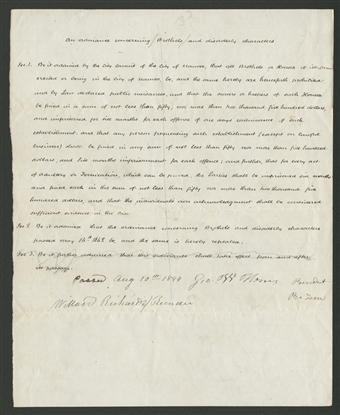 An ordinance concerning Brothels and disorderly characters
Sec. 1. Be it ordained by the City Council of the City of Nauvoo, that all Brothels or Houses of ill fame
erected or being in the City of Nauvoo, be, and the same hereby are henceforth prohibited
and by law declared public nuisances, and that the owners or keepers of such Houses
be fined in a sum of not less than fifty, nor more than five thousand five hundred dollars,
and imprisoned for six months for each offence of one days continuance of such
establishment: and that any person frequenting such establishment (except on lawful
business) shall be fined in any sum of not less than fifty nor more than five hundred
dollars, and six months imprisonment for each offence; and further, that for every act
of adultery or Fornication, which can be proved, the parties shall be imprisoned six months
and fined each in the sum of not less than fifty nor more than five thousand five
hundred dollars, and that the individuals own acknowledgment shall be considered
sufficient evidence in the case
Sec 2. Be it ordained that the ordinance concerning Brothels and disorderly characters
passed may 14th 1842 be and the same is hereby repealed.
Sec 3. Be it further ordained that this ordinance shall take effect from and after
its passage.
Passed Aug 10th 1844 Geo. W Harris President
Pro Tem
Willard Richards Recorder